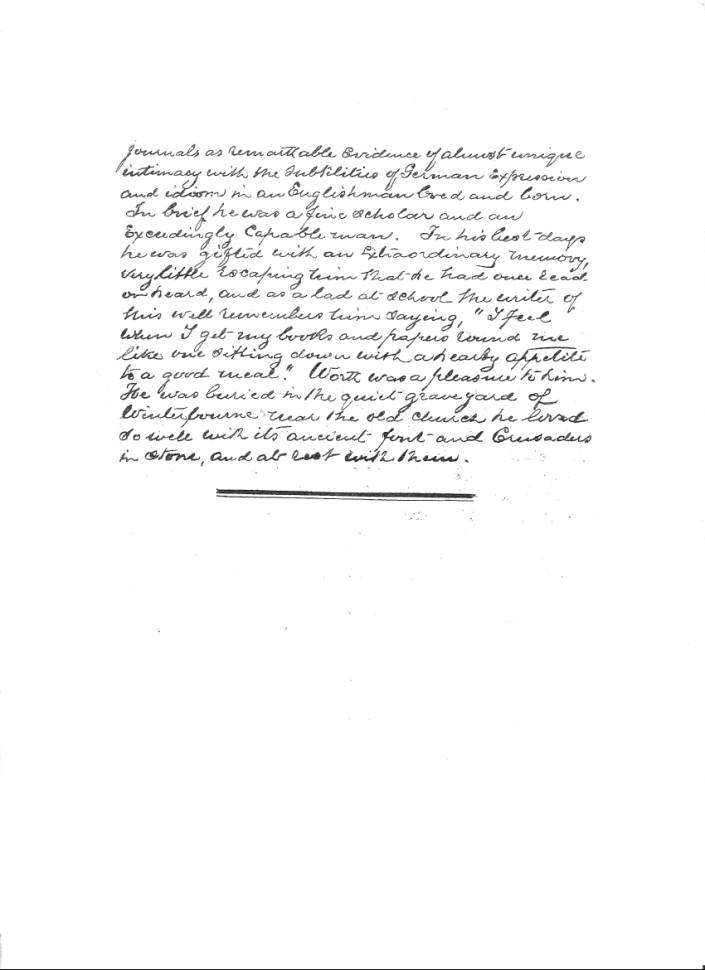 journals as remarkable evidence of almost unique
intimacy with the subtilities of German Expression
and idiom in an Englishman bred and born.
In brief he was a fine scholar and an
Exceedingly Capable man. In his best days
he was gifted with an Extraordinary memory,
very little escaping him that he had once read
or heard, and as a lad at school the writer of
this well remembers him saying, "I feel
when I get my books and papers round me
like one sitting down with a hearty appetite
to a good meal." Work was a pleasure to him.
He was buried in the quiet graveyard of
Winterbourne near the old church he loved
so well with its ancient font and Crusaders
in stone, and at rest with them.